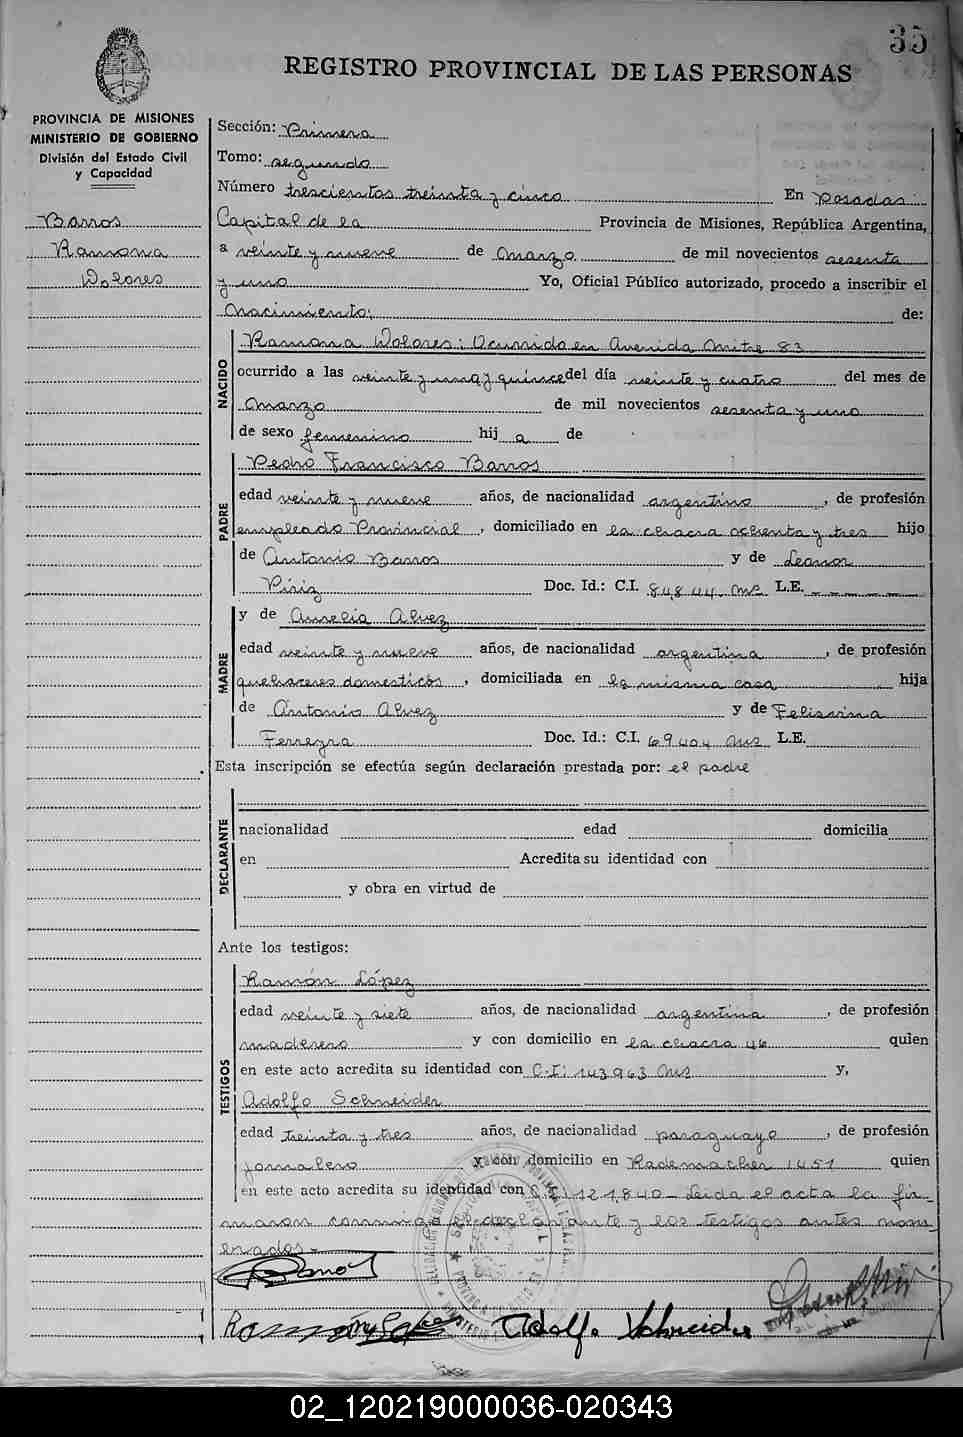 35
REGISTRO PROVINCIAL DE LAS PERSONAS
PROVINCIA DE MISIONES
MINISTERIO DE GOBIERNO
División del Estado Civil
y Capacidad
Barros
Ramona
Dolores
Sección: Primera
Tomo: segundo
Número trescientos treinta y cinco En Posadas
Capital de la Provincia de Misiones, República Argentina,
a veinte y nueve de Marzo de mil novecientos sesenta
y uno Yo, Oficial Público autorizado, procedo a inscribir el
Nacimiento: de:
NACIDO
Ramona Dolores: Ocurrido en Avenida Mitre 83
ocurrido a las veinte y una y quince del día veinte y cuatro del mes de
Marzo de mil novecientos sesenta y uno
de sexo femenino hij a de
PADRE
Pedro Francisco Barros
edad veinte y nueve años, de nacionalidad argentino, de profesión
empleado Provincial, domiciliado en la chacra ochenta y tres hijo
de Antonio Barros y de Leonor
Piriz Doc. Id.: C.I. 84844 Ms L.E. - - - - -
MADRE
y de Aurelia Alvez
edad veinte y nueve años, de nacionalidad argentina, de profesión
quehaceres domesticos, domiciliada en la misma casa hija
de Antonio Alvez y de Felisrina
Ferreyra Doc. Id.: C.I. 69404 Ms L.E.
Esta inscripción se efectúa según declaración prestada por: el padre
DECLARANTE
nacionalidad edad domicilia
en Acredita su identidad con
y obra en virtud de
Ante los testigos:
TESTIGOS
Ramón López
edad veinte y siete años, de nacionalidad argentina, de profesión
maderero y con domicilio en la chacra 46 quien
en este acto acredita su identidad con C.I: 143963 Ms y,
Adolfo Schneider
edad treinta y tres años, de nacionalidad paraguayo, de profesión
jornalero y con domicilio en Rademacher 1451 quien
en este acto acredita su identidad con C.I 121.840 - Leida el acta la fir-
maron conmigo el declarante y los testigos antes nom-
brados -
Adolfo Schneider
02_120219000036-020343